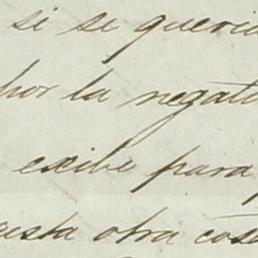 si se queria
por la negati
exibe para
gusta otra cosa